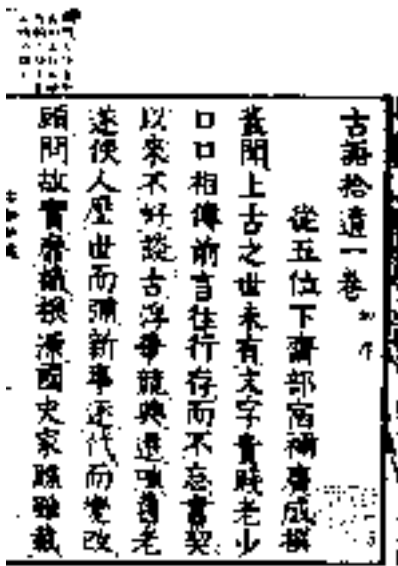 古語拾遺一卷
從五位下齋部宿禰廣成撰
蓋聞上古之世未有文字貴賤老少
口口相傳前言往行存而不忘書契
以來不好談古浮華競興還嗤舊老
遂使人歷世而彌新事逐代而變改
顧問故實靡識根源國史家牒雖載